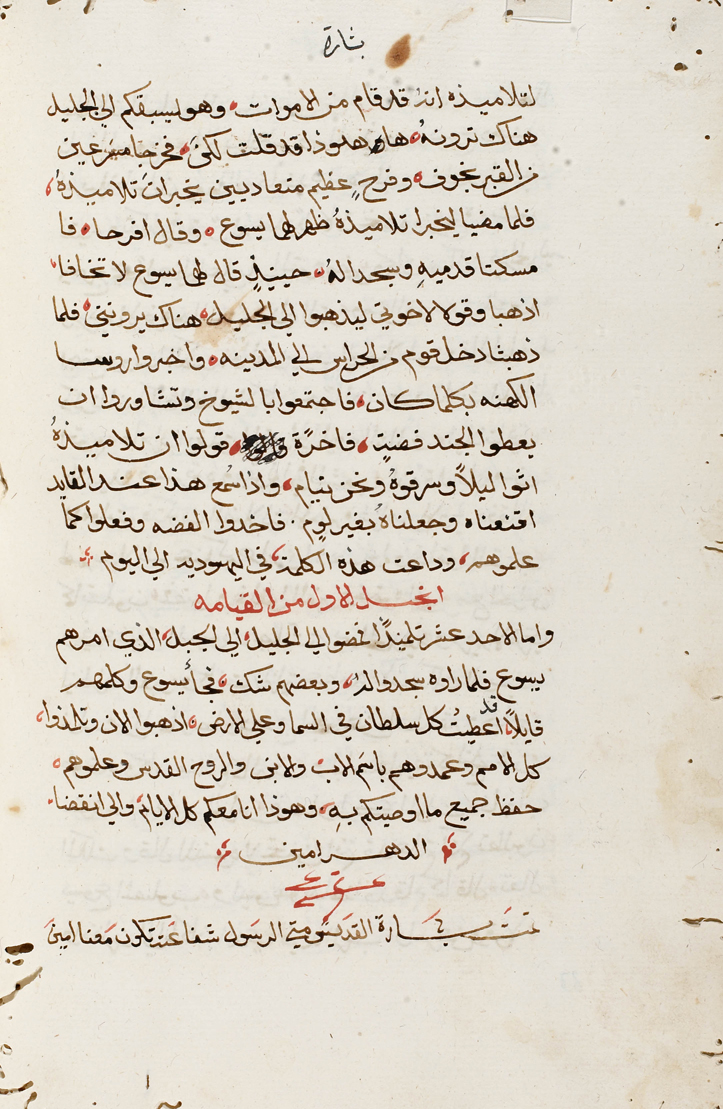 بشارة
لتلاميذه انهُ قد قام من الاموات وهو ليسبقكم الي الجليل
هناك ترونهُ ها هوذا قد قلت لكنَ فخرجا مسرعين
من القبر بخوف وفرحٍ عظيم متعاديين يخبرانَ تلاميذهُ
فلما مضيا ليخبرا تلاميذهُ ظهر لهما يسوع وقال افرحا فا
مسكتا قدميهِ وسجدا لهُ حينيذٍ قال لهما يسوع لا تخافا
اذهبا وقولا لاخوتي ليذهبوا الي الجليل هناك يرونني فلما
ذهبتا دخل قوم من الحراس الي المدينه واخبروا روسا
الكهنه بكلما كان فاجتمعوا بالشيوخ وتشاوروا ان
يعطوا الجند فضةٍ فاخرًة قولوا ان تلاميذهُ
اتوا ليلاً وسرقوهُ ونحن نيام واذا سُمع هذا عند القايد
اقنعناه وجعلناهُ بغير لوم فاخدوا الفضه وفعلوا كما
علموهم وداعت هذه الكلمة في اليهوديه الي اليوم
انجيل الاول من القيامه
واما الاحد عشر تلميذًا فمضوا الي الجليل الي الجبل الذي امرهم
يسوع فلما راوه سجدوا لهُ وبعضهم شك فجأ يسوع وكلمهم
قايلاً قد اعطيتُ كل سلطان في السما وعلي الارض اذهبوا الان وتلمذوا
كل الامم وعمدوهم باسم الاب والابن والروح القدس وعلموهم
حفظ جميع ما اوصيتكم بهِ وهوذا انا معكم كل الايام والي انقضا
الدهر امين
تمت بشارة القديس متي الرسول شفاعته تكون معنا امين